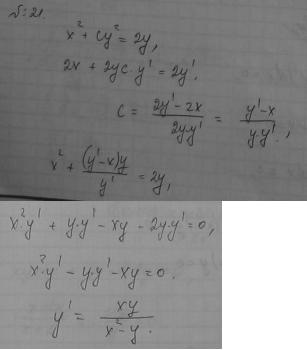 №21.
x² + cy² = 2y,
2x + 2yc·y' = 2y'.
c = (2y' - 2x)/(2yy') = (y' - x)/(y·y'),
x² + (y' - x)y/y' = 2y,
x²y' + y·y' - xy - 2y·y' = 0,
x²y' - y·y' - xy = 0.
y' = xy/(x² - y).